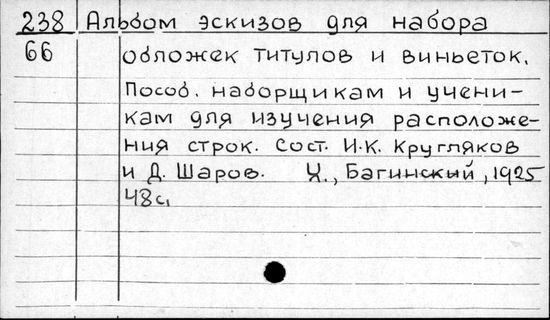 238 Альбом эскизов для набора
66 обложек титулов и виньеток.
Пособ. наборщикам и учени-
кам для изучения расположе-
ния строк. Сост. И.К. Кругляков
и Д. Шаров. Х., Багинский, 1925
48с.